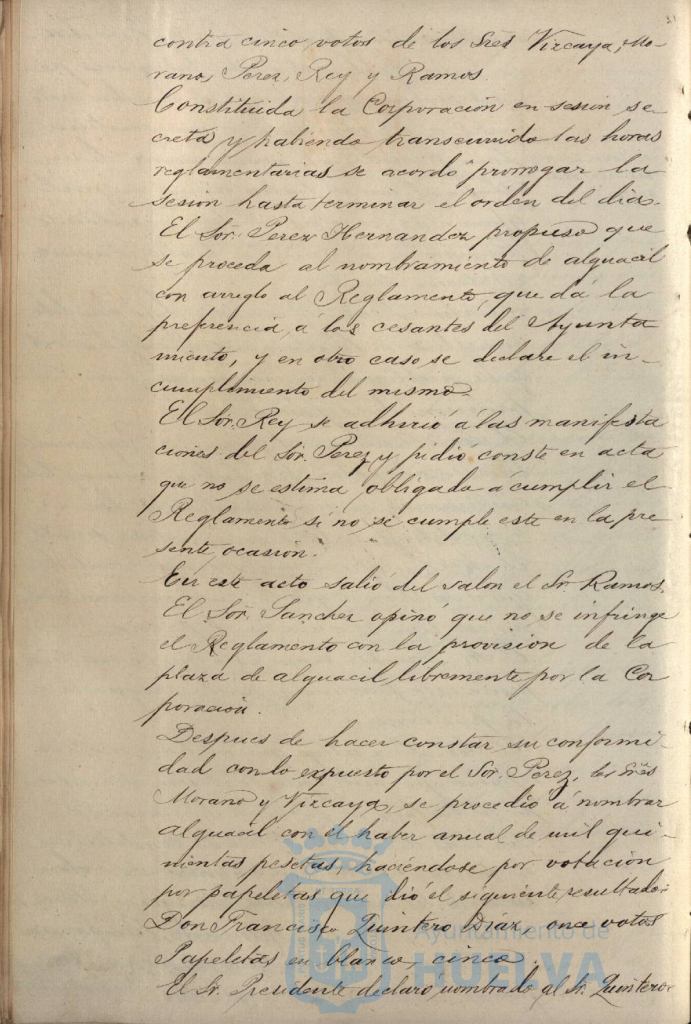 contra cinco votos de los Sres Vizcaya, Mo-
rano, Perez, Rey y Ramos.
Constituida la Corporación en sesion se
creta y habiendo transcurrido las horas
reglamentarias se acordó prorrogar la
sesion hasta terminar el orden del dia.
El Sor. Perez Hernandez propuso que
se proceda al nombramiento de alguacil
con arreglo al Reglamento, que dá la
preferencia, á los cesantes del Ayunta
miento, y en otro caso, se declare el in-
cumplimiento del mismo.
El Sor. Rey se adhirió á las manifesta
ciones del Sor. Perez y pidió conste en acta
que no se estima obligado á cumplir el
Reglamento si no se cumple este en la pre
sente ocasión.
En este acto salió del salon el Sr. Ramos.
El Sor. Sanchez opinó que no se infringe
el Reglamento con la provision de la
plaza de alguacil libremente por la Cor
poración.
Despues de hacer constar su conformi-
dad con lo expuesto por el Sor. Perez, los Sres
Morano y Vizcaya, se procedió á nombrar
alguacil con el haber anual de mil qui-
nientas pesetas, haciéndose por votación
por papeletas que dió el siguiente resultado:
Don Francisco Quintero Diáz, once votos
Papeletas en blanco, cinco.
El Sr. Presidente declaró nombrado al Sr. Quintero
Ayuntamiento de
HUELVA